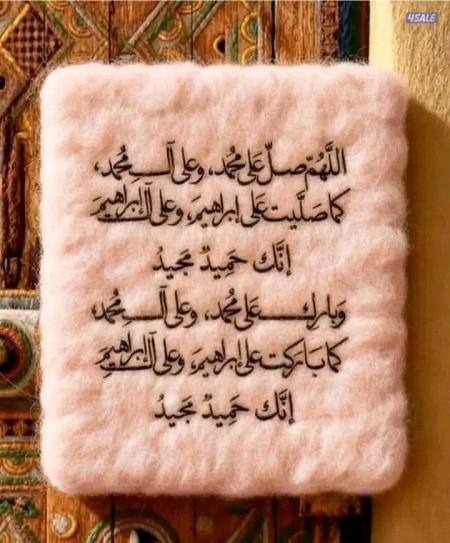 4SALE
اللَّهُمَّ صلِّ عَلى مُحمد، وعلى آل مُحمد،
كما صَلَّيت عَلى ابراهيمَ، وعَلى آل ابراهيمَ
إنَّك حَمِيدٌ مَجيدُ
وَبارك عَلى مُحمد، وعَلى آل مُحمد،
كما بَاركت على إبراهيمَ، وعَلى آل ابراهيمَ
إنَّك حَمِيدٌ مَجيدُ